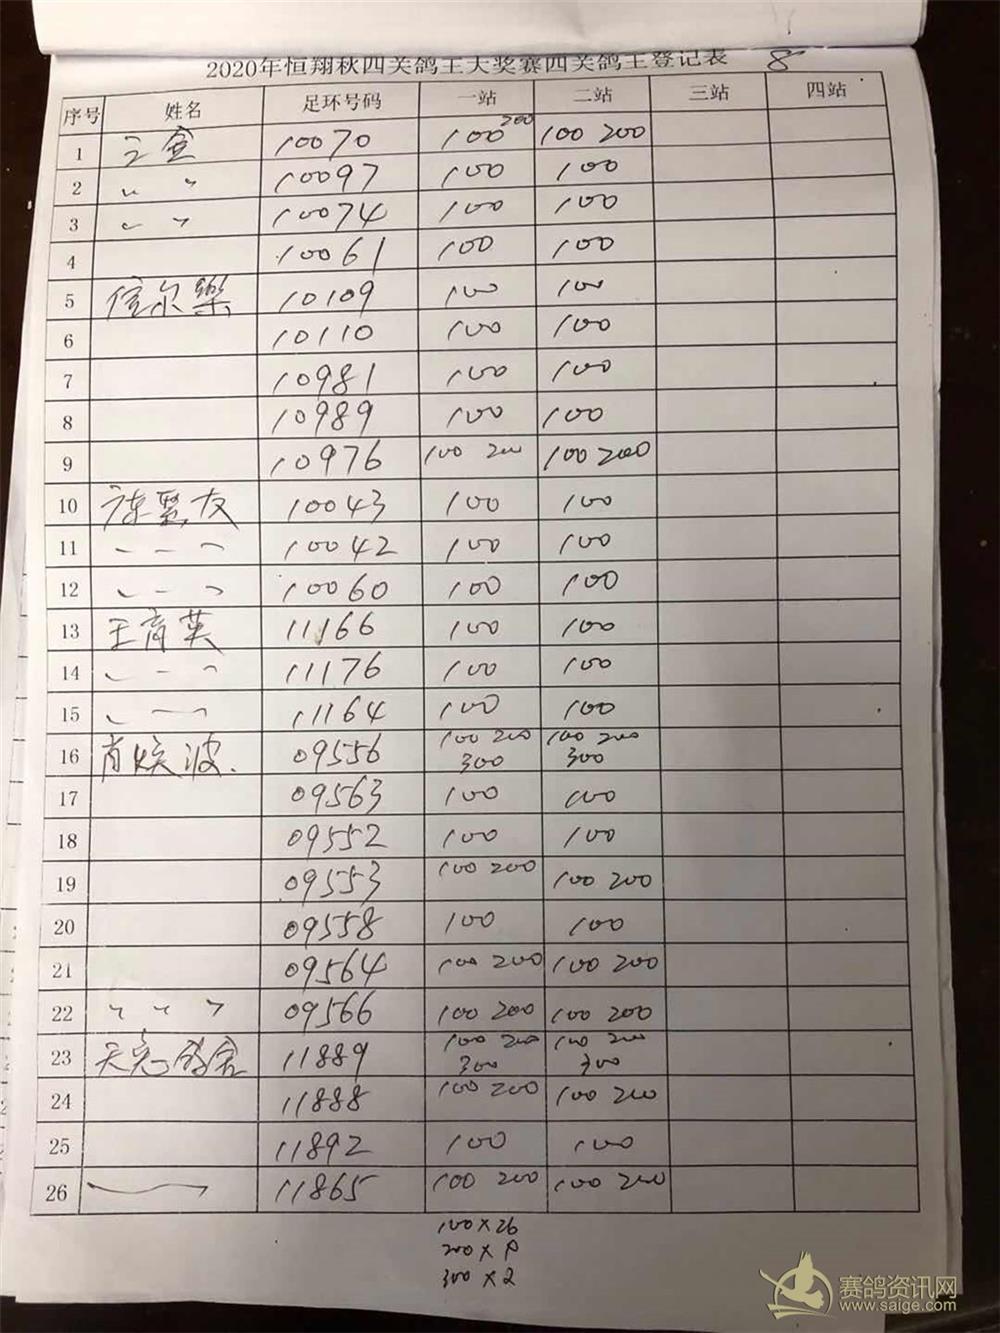 2020年恒翔秋四关鸽王大奖赛四关鸽王登记表 8
序号 姓名 足环号码 一站 二站 三站 四站
1 王金 10070 100 200 100 200
2 〃 〃 10097 100 100
3 〃 〃 10074 100 100
4 10061 100 100
5 信尔樂 10109 100 100
6 10110 100 100
7 10981 100 100
8 10989 100 100
9 10976 100 200 100 200
10 友 10043 100 100
11 10042 100 100
12 10060 100 100
13 王育英 11166 100 100
14 11176 100 100
15 11164 100 100
16 肖焕波 09556 100 200 300 100 200 300
17 09563 100 100
18 09552 100 100
19 09553 100 200 100 200
20 09558 100 100
21 09564 100 200 100 200
22 〃 〃 〃 09566 100 200 100 200
23 天 鸽舍 11889 100 200 300 100 200 300
24 11888 100 200 100 200
25 11892 100 100
26 11865 100 200 100 200
100×26
200×
300×2
赛鸽资讯网
www.saige.com